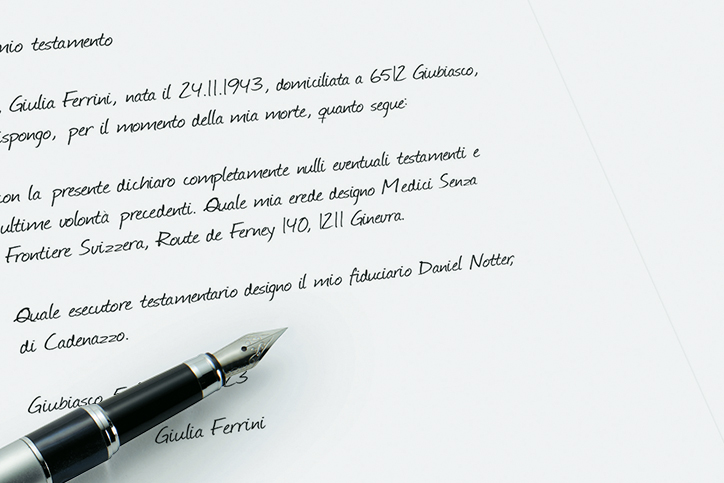 mio testamento
Giulia Ferrini, nata il 24.11.1943, domiciliata a 6512 Giubiasco,
ispongo, per il momento della mia morte, quanto segue:
con la presente dichiaro completamente nulli eventuali testamenti e
ultime volontà precedenti. Quale mia erede designo Medici Senza
Frontiere Svizzera, Route de Ferney 140, 1211 Ginevra.
Quale esecutore testamentario designo il mio fiduciario Daniel Notter,
di Cadenazzo.
Giubiasco
Giulia Ferrini